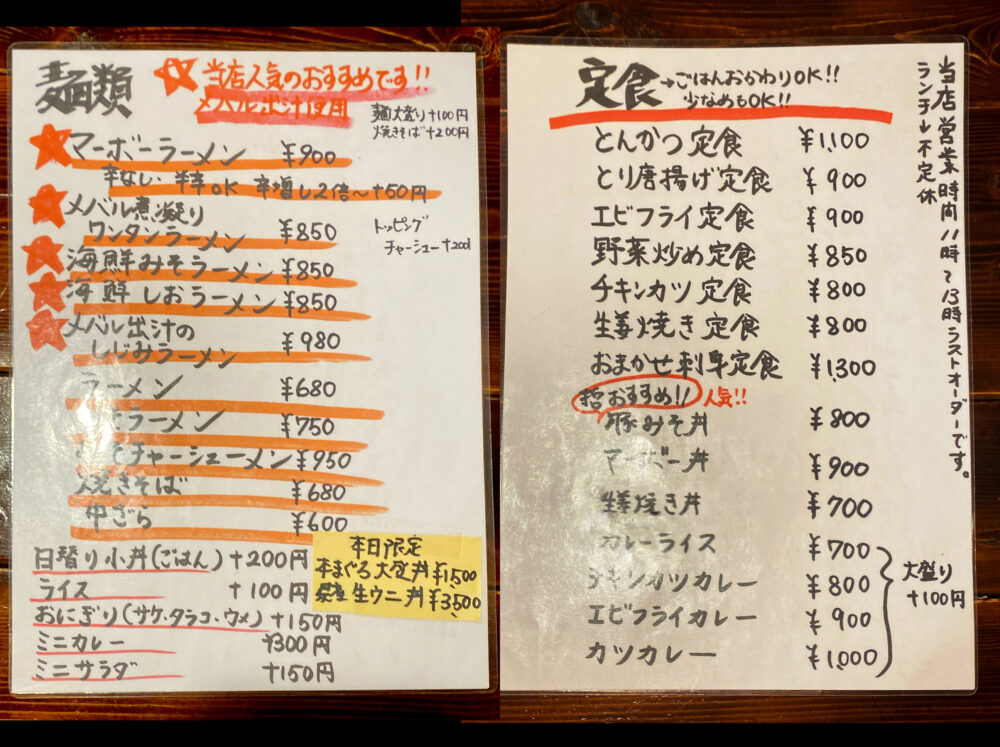 麺類
当店人気のおすすめです!!
メバル出汁使用
麺大盛り+100円
焼きそば+200円
マーボーラーメン ¥900
辛なし・半辛OK 辛増し2倍〜+50円
メバル煮凝り
ワンタンラーメン ¥850
トッピング
チャーシュー+200
海鮮みそラーメン ¥850
海鮮しおラーメン ¥850
メバル出汁の
しじみラーメン ¥980
ラーメン ¥680
ラーメン ¥750
チャーシューメン ¥950
焼きそば ¥680
中ざら ¥600
日替り小丼(ごはん) +200円
ライス +100円
おにぎり(サケ・タラコ・ウメ) +150円
ミニカレー ¥300円
ミニサラダ +150円
本日限定
本まぐろ大盛丼 ¥1,500
生ウニ丼 ¥3,500
定食→ごはんおかわりOK!!
少なめもOK!!
とんかつ定食 ¥1,100
とり唐揚げ定食 ¥900
エビフライ定食 ¥900
野菜炒め定食 ¥850
チキンカツ定食 ¥800
生姜焼き定食 ¥800
おまかせ刺身定食 ¥1,300
超おすすめ!! 人気!!
豚みそ丼 ¥800
マーボー丼 ¥900
生姜焼き丼 ¥700
カレーライス ¥700
チキンカツカレー ¥800
エビフライカレー ¥900
カツカレー ¥1,000
大盛り
+100円
当店営業時間11時〜13時ラストオーダーです。
ランチ 不定休